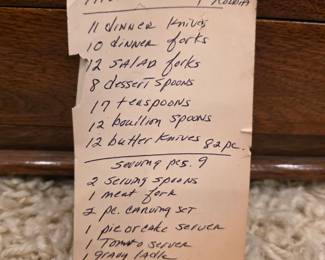 11 dinner knives
10 dinner forks
12 salad forks
8 dessert spoons
17 teaspoons
12 bouillon spoons
12 butter knives 82 pc.
serving pcs. 9
2 serving spoons
1 meat fork
2 pc. carving set
1 pie or cake server
1 Tomato server
1 gravy ladle